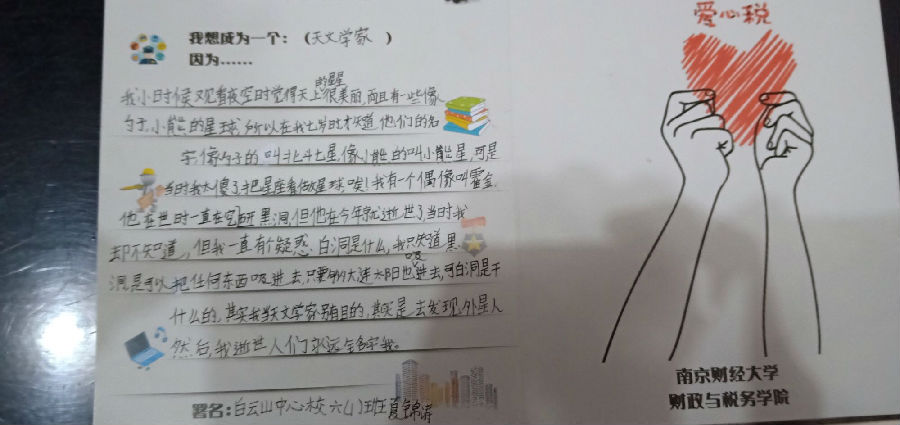 我想成为一个：（天文学家 ）
因为……
我小时候观看夜空时觉得天上的星星很美丽,而且有一些像
勺子,小熊的星球,所以在我七岁时才知道他们的名
字,像勺子的叫北斗七星,像小熊的叫小熊星,可是
当时我太傻了把星座看做星球唉!我有一个偶像叫霍金,
他在世时一直在研黑洞,但他在今年就逝世了,当时我
却不知道,但我一直有个疑惑,白洞是什么,我只知道黑
洞是可以把任何东西吸进去,只要够大连太阳也吸进去,可白洞是干
什么的,其实我当天文学家别有目的,其实是去发现外星人
然后,我逝世人们永远会记我。
署名:白云山中心校六(1)班夏锦涛
爱心税
南京财经大学
财政与税务学院